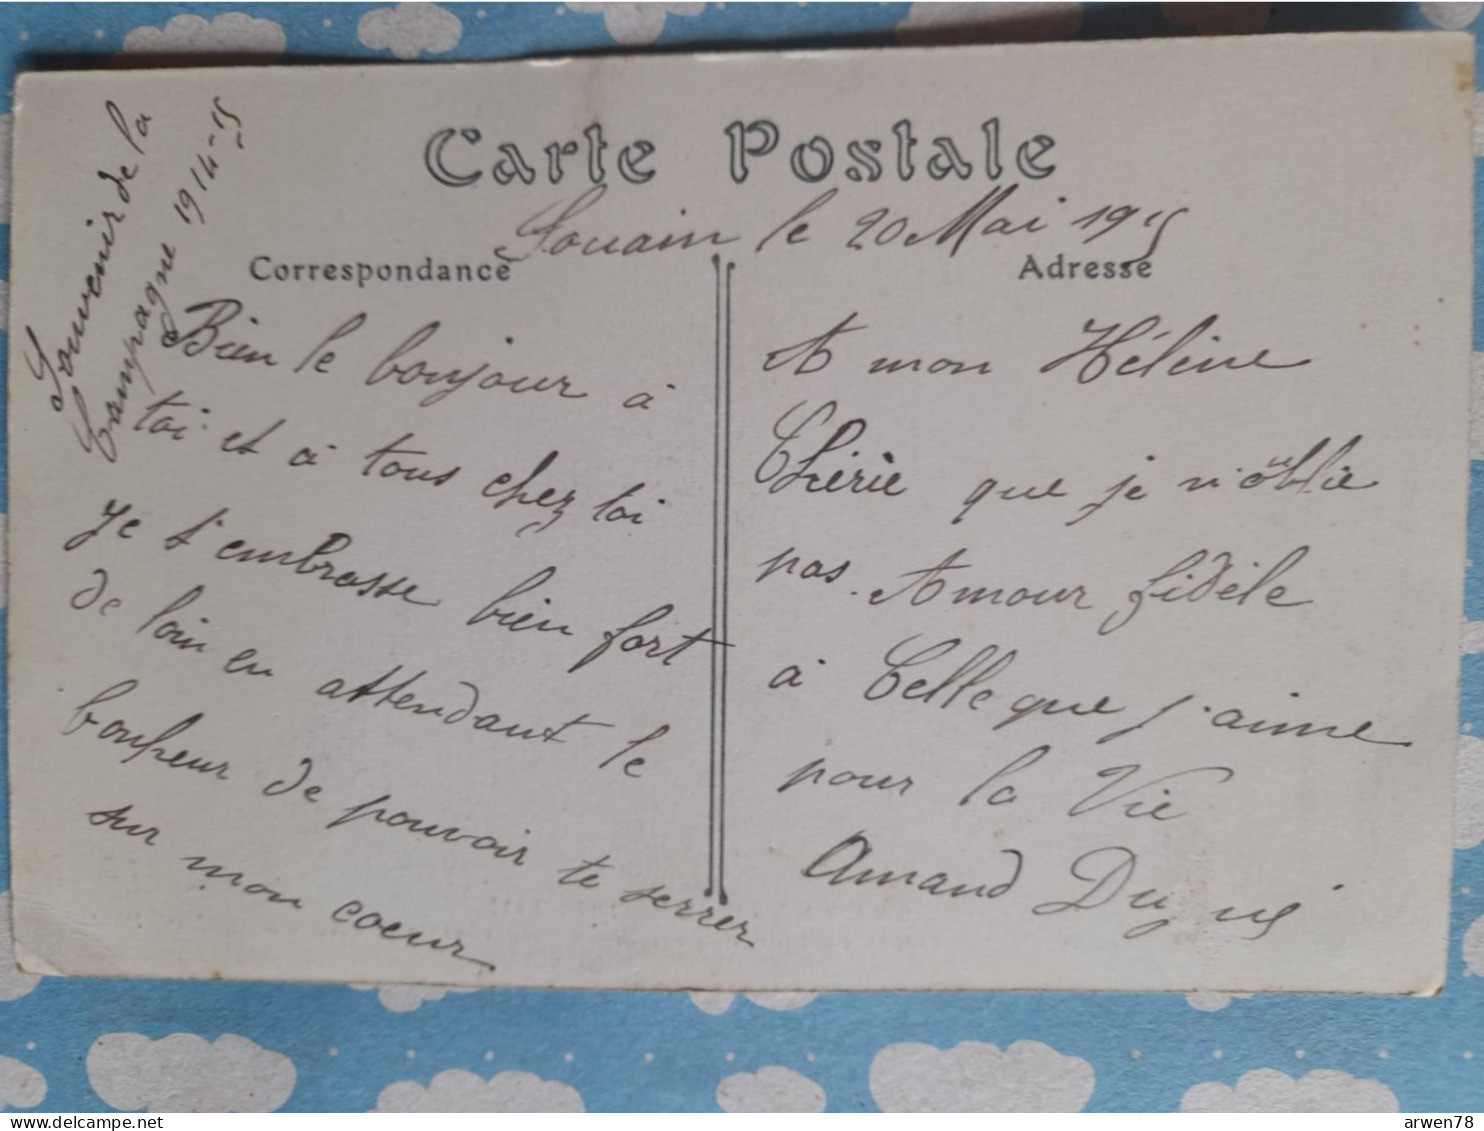 Souvenir de la
Campagne 1914-15
Carte Postale
Souain le 20 Mai 1915
Correspondance
Bien le bonjour à
toi et à tous chez toi
Je t'embrasse bien fort
de loin en attendant le
bonheur de pouvoir te serrer
sur mon coeur
Adresse
A mon Hélène
Chérie que je n'oublie
pas. Amour fidèle
à Celle que j'aime
pour la Vie
Amand
arwen78